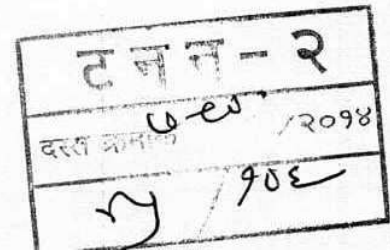 ट न न - २
दस्त क्रमांक /२०१४
/ १०६